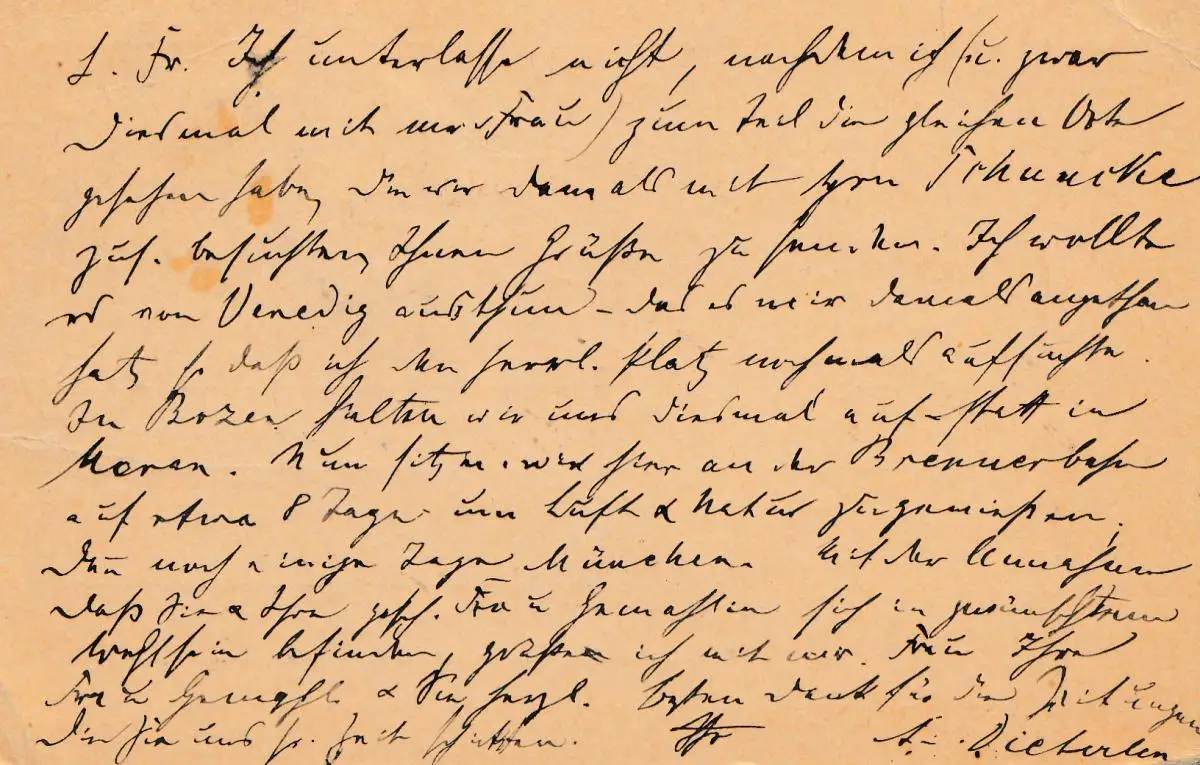 L. Fr. Ich unterlasse nicht, nachdem ich (u. zwar
diesmal mit mr. Frau) zum Teil die gleichen Orte
gesehen habe, die wir damals mit Hrn Schuncke
zus. besuchten, Ihnen Grüße zu senden. Ich wollte
es von Venedig aus thun – das es mir damals angethan
hat, so daß ich den herrl. Platz nochmals aufsuchte.
In Bozen hielten wir uns diesmal auf – statt in
Meran. Nun sitzen wir hier an der Brennerbahn
auf etwa 8 Tage um Luft & Natur zu genießen,
dan noch einige Tage München. Mit der Annahme
daß Sie & Ihre gesch. Frau Gemahlin sich in gewünschtem
Wohlsein befinden, grüßen ich mit mr. Frau Ihre
Frau Gemahl. & Sie herzl. Besten Dank für die Zeitungen
die Sie uns sr. Zeit schickten. Ihr A. Dieterlen